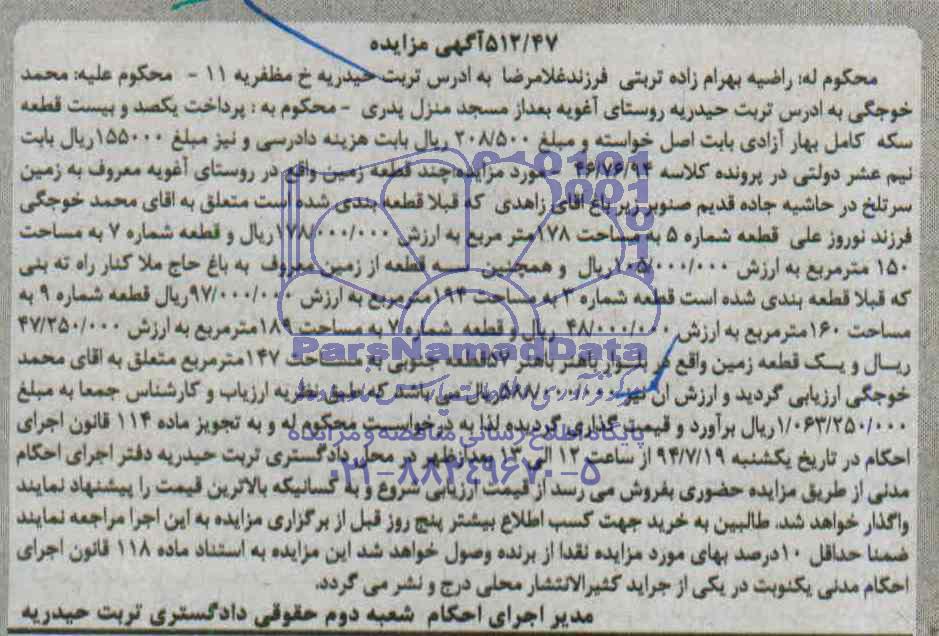 ۵۱۲/۴۷آگهی مزایده
محکوم له: راضیه بهرام زاده تربتی فرزندغلامرضا به ادرس تربت حیدریه خ مظفریه ۱۱ - محکوم علیه: محمد
خوجگی به ادرس تربت حیدریه روستای آغویه بعداز مسجد منزل پدری - محکوم به : پرداخت یکصد و بیست قطعه
سکه کامل بهار آزادی بابت اصل خواسته و مبلغ ۲۰۸/۵۰۰ ریال بابت هزینه دادرسی و نیز مبلغ ۱۵۵۰۰۰ریال بابت
نیم عشر دولتی در پرونده کلاسه ۴۶/۷۶/۹۴ - مورد مزایده:چند قطعه زمین واقع در روستای آغویه معروف به زمین
سرتلخ در حاشیه جاده قدیم صنوبر زیر باغ اقای زاهدی که قبلا قطعه بندی شده است متعلق به اقای محمد خوجگی
فرزند نوروز علی قطعه شماره ۵ به مساحت ۱۷۸متر مربع به ارزش ۱۷۸/۰۰۰/۰۰۰ریال و قطعه شماره ۷ به مساحت
۱۵۰ مترمربع به ارزش ۱۰۵/۰۰۰/۰۰۰ریال و همچنین سه قطعه از زمین معروف به باغ حاج ملا کنار راه ته بنی
که قبلا قطعه بندی شده است قطعه شماره ۳ به مساحت ۱۹۴مترمربع به ارزش ۹۷/۰۰۰/۰۰۰ریال قطعه شماره ۹ به
مساحت ۱۶۰مترمربع به ارزش ۴۸/۰۰۰/۰۰۰ ریال و قطعه شماره ۷ به مساحت ۱۸۹مترمربع به ارزش ۴۷/۲۵۰/۰۰۰
ریال و یک قطعه زمین واقع در بلوار باهنر باهنر ۵۷قطعه جنوبی به مساحت ۱۴۷مترمربع متعلق به اقای محمد
خوجگی ارزیابی گردید و ارزش آن نیز ۵۸۸/۰۰۰/۰۰۰ریال می باشد که طبق نظریه ارزیاب و کارشناس جمعا به مبلغ
۱/۰۶۳/۲۵۰/۰۰۰ریال برآورد و قیمت گذاری گردیدو لذا به درخواست محکوم له و به تجویز ماده ۱۱۴ قانون اجرای
احکام در تاریخ یکشنبه ۹۴/۷/۱۹ از ساعت ۱۲ الی ۱۳ بعدازظهر در محل دادگستری تربت حیدریه دفتر اجرای احکام
مدنی از طریق مزایده حضوری بفروش می رسد از قیمت ارزیابی شروع و به کسانیکه بالاترین قیمت را پیشنهاد نمایند
واگذار خواهد شد. طالبین به خرید جهت کسب اطلاع بیشتر پنج روز قبل از برگزاری مزایده به این اجرا مراجعه نمایند
ضمنا حداقل ۱۰درصد بهای مورد مزایده نقدا از برنده وصول خواهد شد این مزایده به استناد ماده ۱۱۸ قانون اجرای
احکام مدنی یکنوبت در یکی از جراید کثیرالانتشار محلی درج و نشر می گردد.
مدیر اجرای احکام شعبه دوم حقوقی دادگستری تربت حیدریه
ParsNamadData
پایگاه اطلاع رسانی مناقصه و مزایده
۰۲۱-۸۸۳۴۹۶۷۰-۵